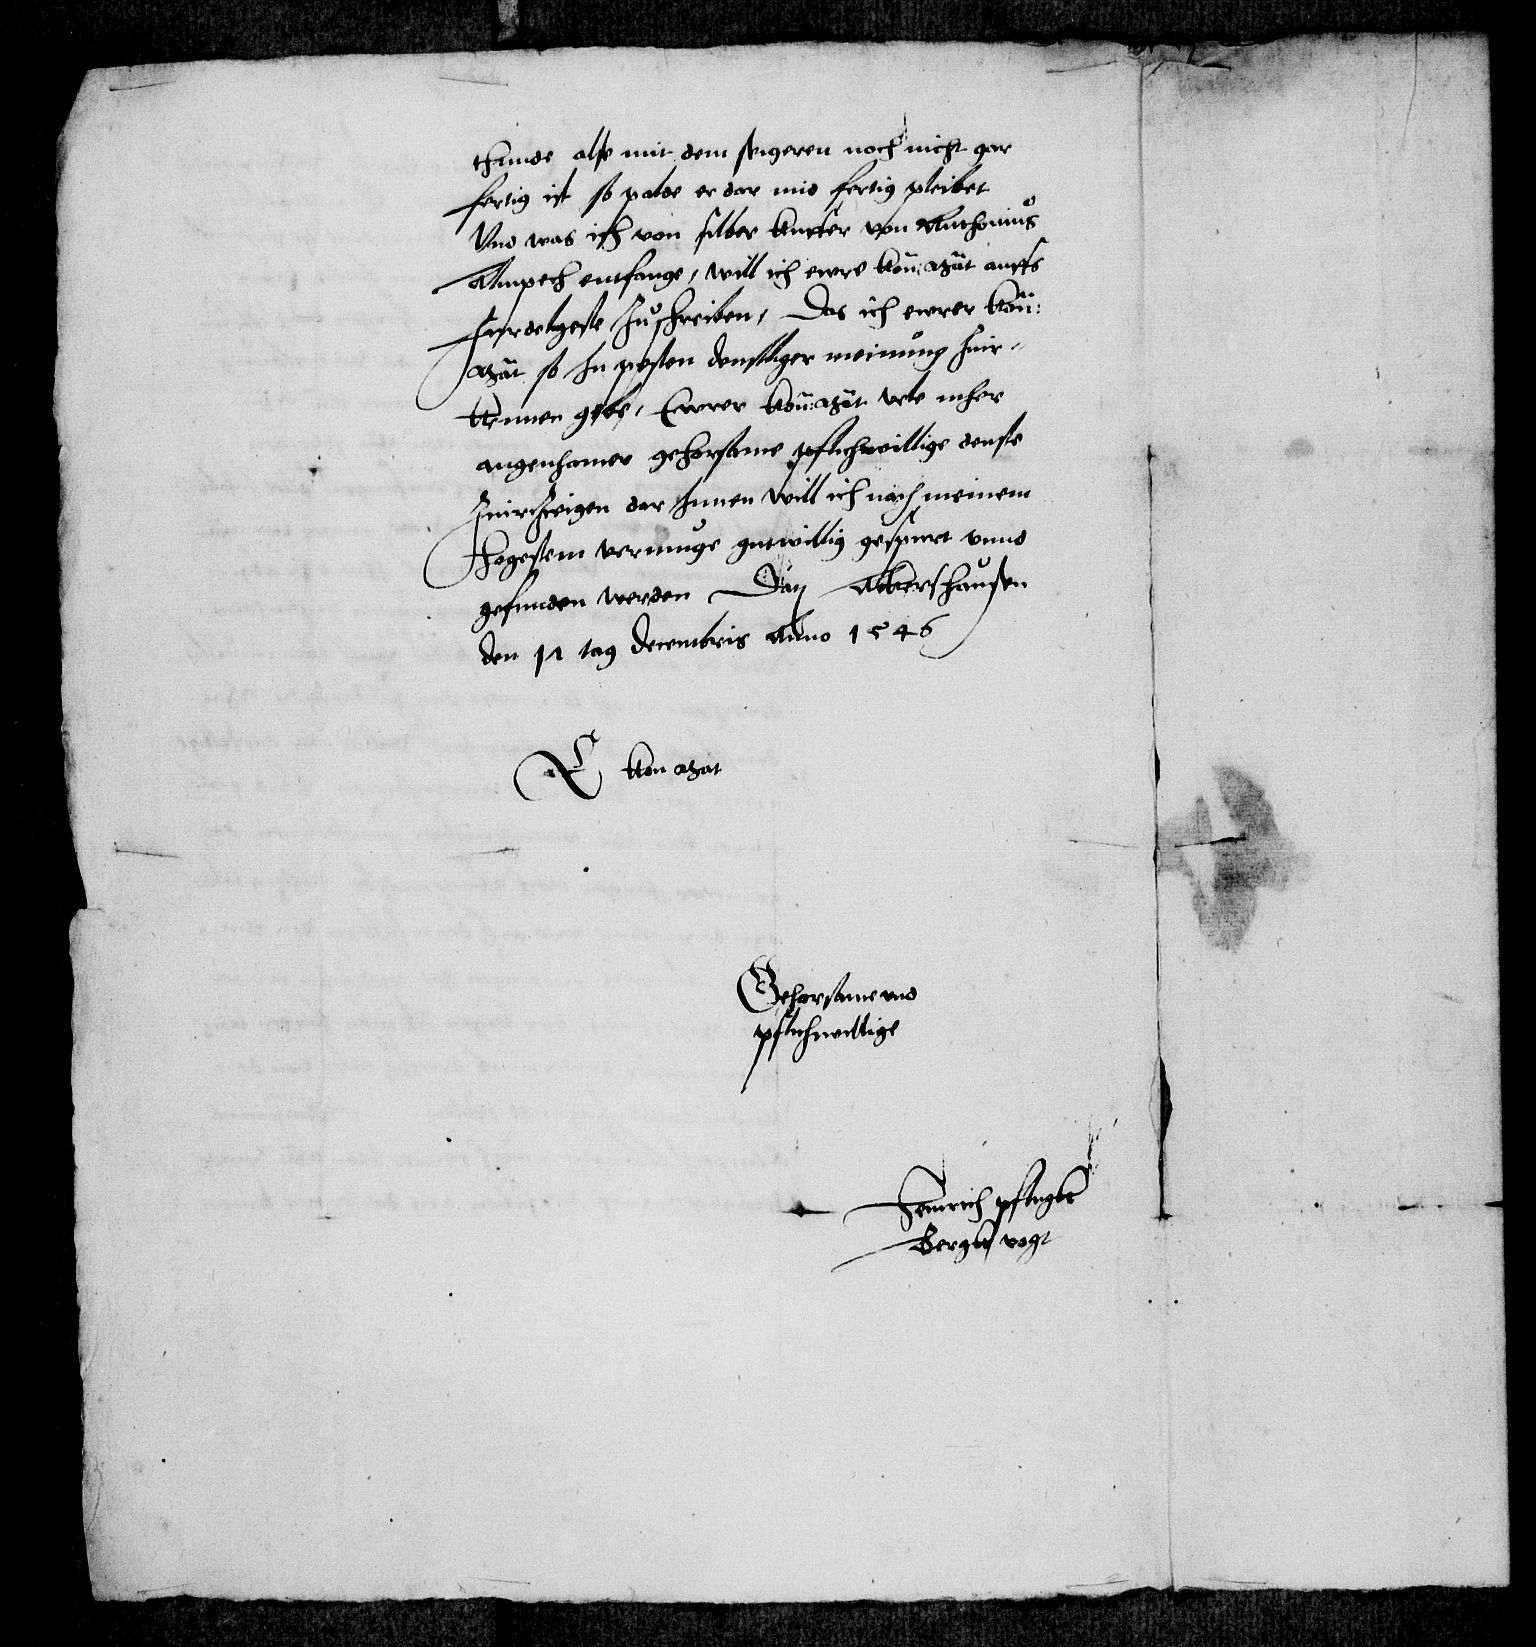 thunde alse mit dem seigeren noch nicht gar
fertig ist so palde er dar mid fertig pleibet
Vnd was ich von silber kupfer von Anthonius
Ampech entfange, will ich ewre kön: Mät auffs
furdelgeste zuschreiben, Das ich ewrer kön:
Mät so in pesten denstliger meinung hir
kennen gebe, Ewrer kön: Mät vele mher
angenhamer gehorsame pflichwillige denste
zuirzeigen dar Innen will ich nach meinem
hogestem vermuge gutwillig gespurt vnnd
gefunden werden Datz Akkershausen
den 12 tag decembris Anno 1546
E kon Mat
Gehorsame vnd
pflichwillige
Heinrich pflugkt
Bergk vogt